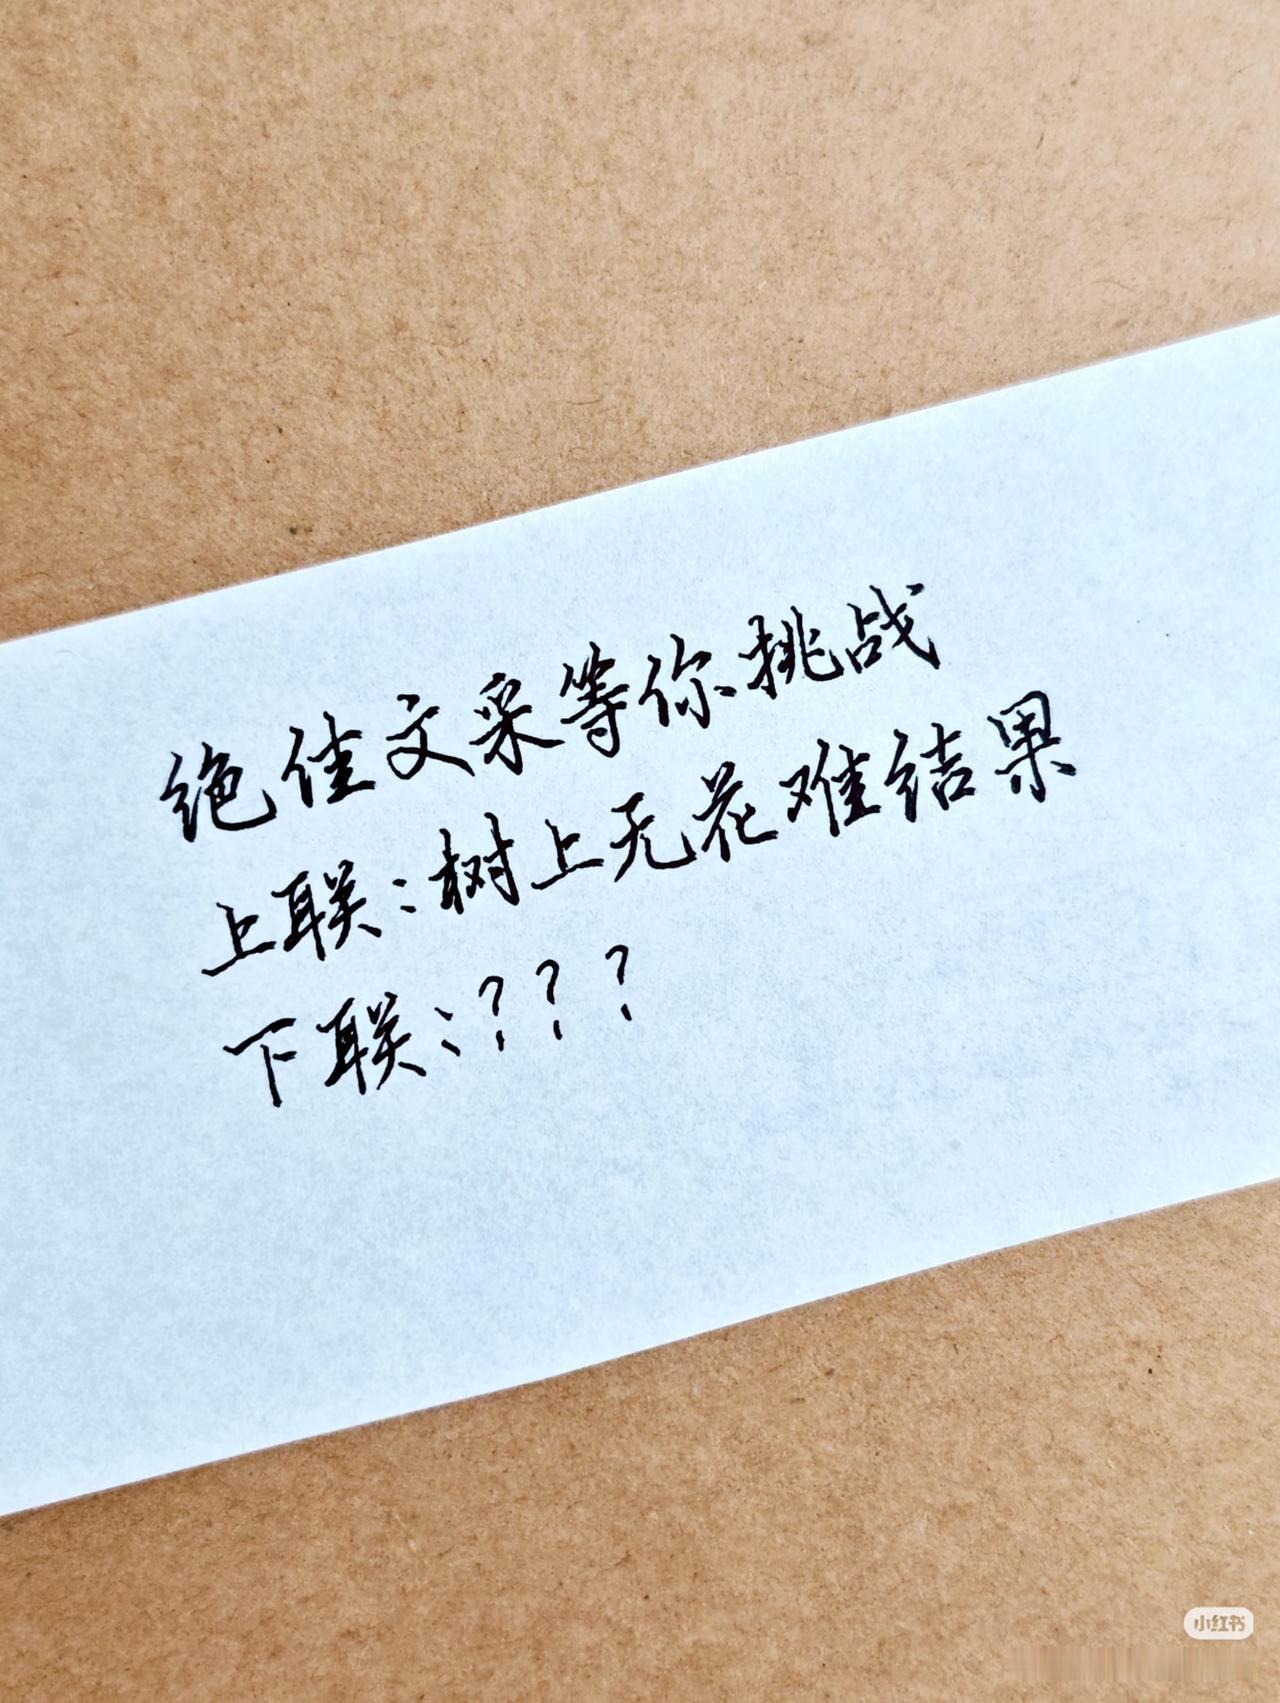 绝佳文采等你挑战
上联:树上无花难结果
下联:???
小红书